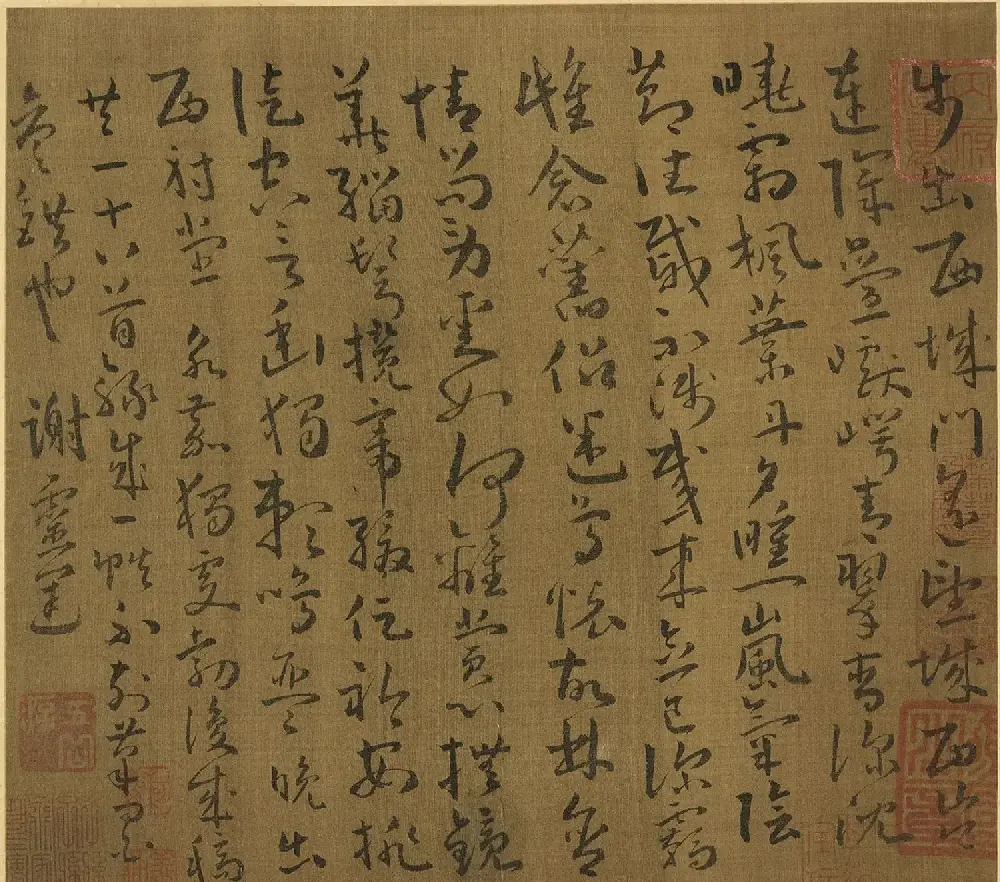 步出西城門遙望城西岑
連鄣疊巘崿青翠杳深沈
曉霜楓葉丹夕曛嵐氣陰
節往慼不淺感來念已深羈
雌念舊侶迷鳥懷故林含
情尚勞愛如何離賞心撫鏡
華緇鬢攬帶緩促衿安排
徒空言幽獨賴鳴琴晚出
西射堂永嘉獨後成稿
共一十八首錄成一帙不草
錯也謝靈運